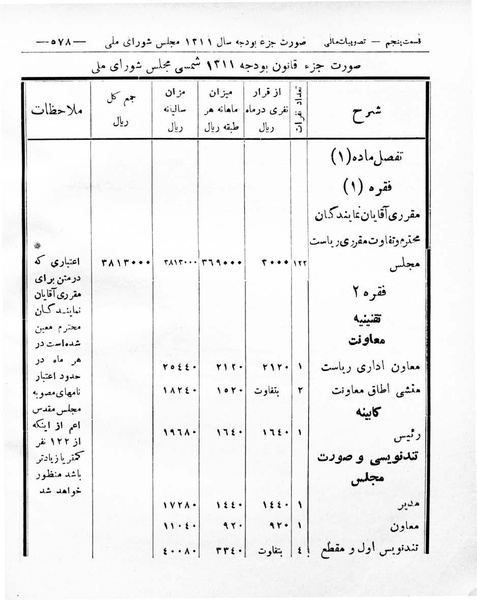 قسمت پنجم — تصویبات مالی صورت جزء بودجه سال ۱۳۱۱ مجلس شورای ملی —۵۷۸—
صورت جزء قانون بودجه ۱۳۱۱ شمسی مجلس شورای ملی
شرح تعداد نفرات از قرار نفری درماه ریال میزان ماهانه هر طبقه ریال میزان سالیانه ریال جمع کل ریال ملاحظات
تفصل ماده (۱)
فقره (۱)
مقرری آقایان نمایندگان
محترم و تفاوت مقرری ریاست
مجلس ۱۲۲ ۳۰۰۰ ۳۶۹۰۰۰ ۳۸۱۳۰۰۰ ۳۸۱۳۰۰۰
فقره ۲
تقنینیه
معاونت
معاون اداری ریاست ۱ ۲۱۲۰ ۲۱۲۰ ۲۵٤٤۰
منشی اطاق معاونت ۲ بتفاوت ۱۵۲۰ ۱۸۲٤۰
کابینه
رئیس ۱ ۱٦٤۰ ۱٦٤۰ ۱۹٦۸۰
تندنویسی و صورت
مجلس
مدیر ۱ ۱٤٤۰ ۱٤٤۰ ۱۷۲۸۰
معاون ۱ ۹۲۰ ۹۲۰ ۱۱۰٤۰
تندنویس اول و مقطع ٤ بتفاوت ۳۳٤۰ ٤۰۰۸۰
*
اعتباری که
درمتن برای
مقرری آقایان
نمایندگان
محترم معین
شده‌است در
هر ماه در
حدود اعتبار
نامهای مصوبه
مجلس مقدس
اعم از اینکه
از ۱۲۲ نفر
کمتر یا زیادتر
باشد منظور
خواهد شد